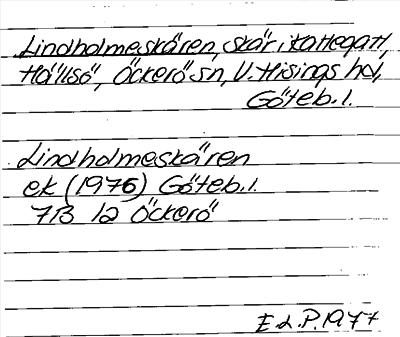 Lindholmeskären, skär i Kattegatt,
Hällsö, Öckerö sn, V. Hisings hd,
Göteb. l.
Lindholmeskären
ek (1976) Göteb. l.
7B 1a Öckerö
E.L.P. 1977